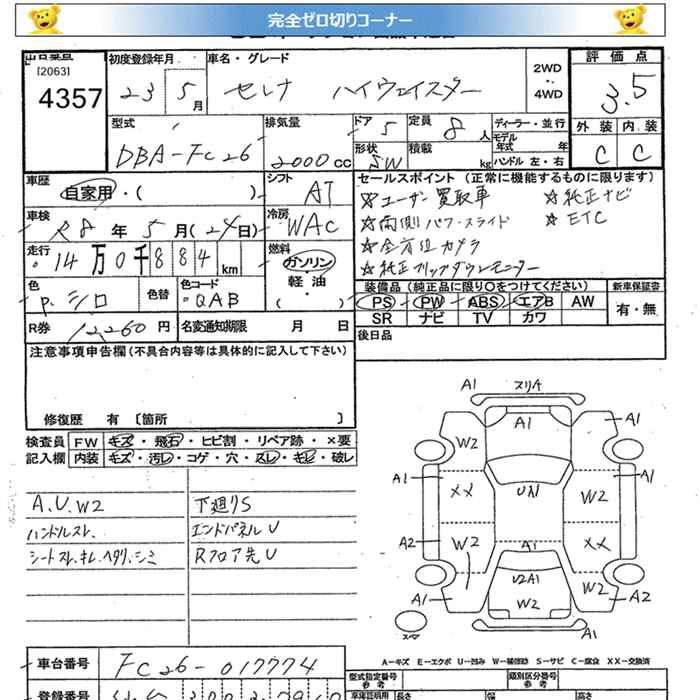 完全ゼロ切りコーナー
[2063]
4357
初度登録年月
23 5月
車名・グレード
セレナ ハイウェイスター
2WD
・・
4WD
評価点
3.5
外装 内装
C C
型式
DBA-FC26
排気量
2000cc
ドア 5
定員 8人
形状 SW
積載 kg
ディーラー・並行
モデル年式 年
ハンドル 左・右
車歴
自家用・( )
車検
R8年5月(24日)
走行
14万0千884km
シフト AT
冷房 WAC
燃料
ガソリン
・
軽油
・( )
色
P.シロ
色替
色コード
QAB
R券 12,260円
名変通知期限 月 日
セールスポイント (正常に機能するものに限ります)
☆ユーザー買取車 ☆純正ナビ
☆両側パワースライド ☆ETC
☆全方位カメラ
☆純正フリップダウンモニター
装備品(純正品に限り○をつけてください)
PS PW ABS エアB AW
SR ナビ TV カワ
新車保証書
有・無
後日品
注意事項申告欄(不具合内容等は具体的に記入して下さい)
修復歴 有 〔箇所 〕
検査員記入欄
FW キズ・飛石・ヒビ割・リペア跡・×要
内装 キズ・汚レ・コゲ・穴・スレ・キレ・破レ
A.U.W2
ハンドルスレ.
シートスレ.キレ.ヘタリ.シミ
下廻りS
エンドパネルU
Rフロア先U
A1 スリキ
A1
A1
W2
A1
A1
XX
UA1
W2
A1
A2
W2
A1
XX
U2A1
W2
W2
A1
A1
スマ
A-キズ E-エクボ U-凹み W-補修跡 S-サビ C-腐食 XX-交換済
車台番号 FC26-017774
登録番号
型式指定番号
参考
類別区分番号
参考
長さ 幅 高さ